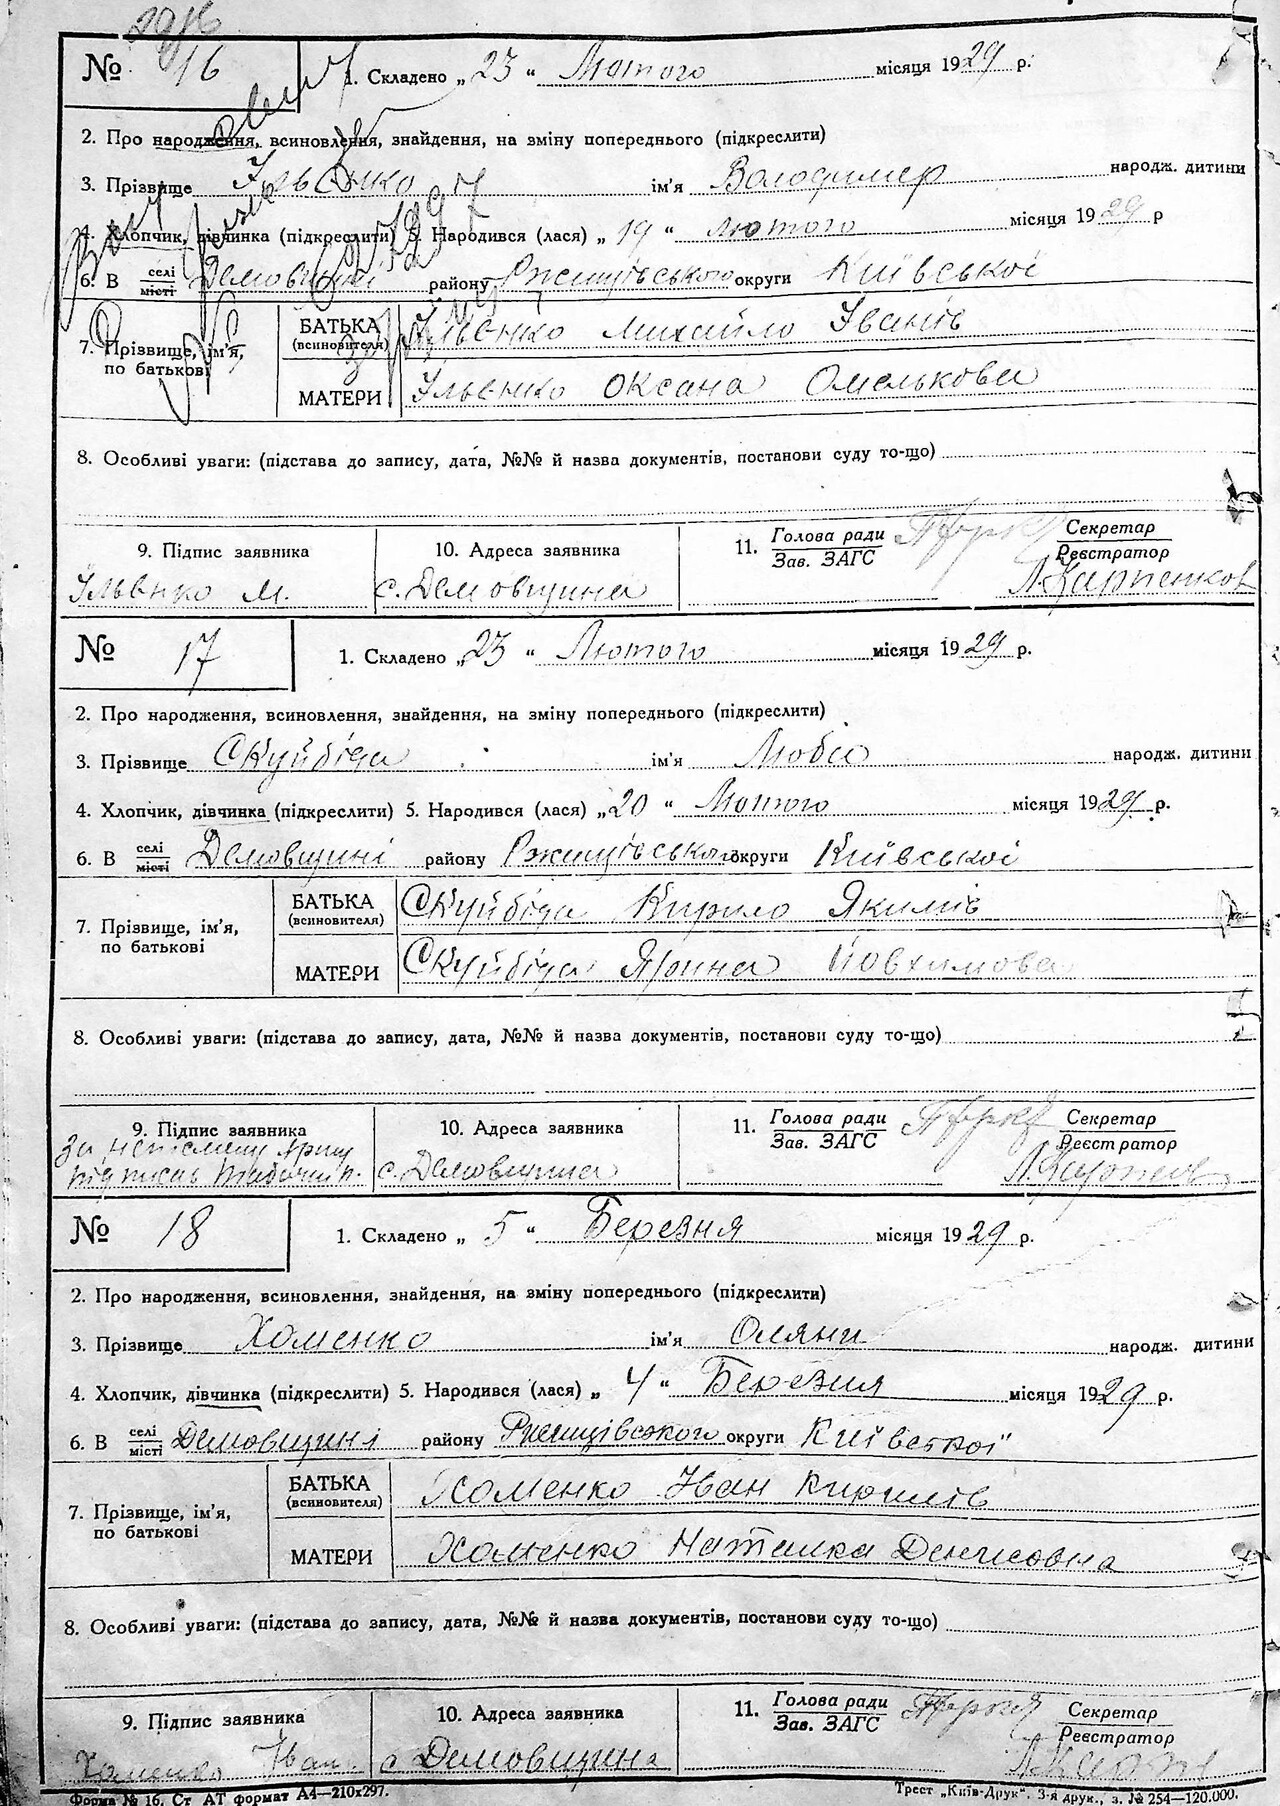 № 16
1. Складено „23“ Лютого місяця 1929 р.
2. Про народження, всиновлення, знайдення, на зміну попереднього (підкреслити)
3. Прізвище Ільєнко ім'я Володимер народж. дитини
4. Хлопчик, дівчинка (підкреслити) 5. Народився (лася) „19“ лютого місяця 1929 р
6. В селі місті Демовщині району Ржищівського округи Київської
7. Прізвище, ім'я, по батькові
БАТЬКА (всиновителя) Ільєнко Михайло Іванів
МАТЕРИ Ільєнко Оксана Омелькова
8. Особливі уваги: (підстава до запису, дата, №№ й назва документів, постанови суду то-що)
9. Підпис заявника 10. Адреса заявника 11. Голова ради Зав. ЗАГС Секретар Реєстратор
Ільєнко М. с. Демовщина Л. Карпенков
№ 17
1. Складено „23“ Лютого місяця 1929 р.
2. Про народження, всиновлення, знайдення, на зміну попереднього (підкреслити)
3. Прізвище Скуйбіда ім'я Люба народж. дитини
4. Хлопчик, дівчинка (підкреслити) 5. Народився (лася) „20“ Лютого місяця 1929 р.
6. В селі місті Демовщині району Ржищівського округи Київської
7. Прізвище, ім'я, по батькові
БАТЬКА (всиновителя) Скуйбіда Кирило Якимів
МАТЕРИ Скуйбіда Ярина Йовхимова
8. Особливі уваги: (підстава до запису, дата, №№ й назва документів, постанови суду то-що)
9. Підпис заявника 10. Адреса заявника 11. Голова ради Зав. ЗАГС Секретар Реєстратор
За
с. Демовщина
№ 18
1. Складено „5“ Березня місяця 1929 р.
2. Про народження, всиновлення, знайдення, на зміну попереднього (підкреслити)
3. Прізвище Хоменко ім'я Оляни народж. дитини
4. Хлопчик, дівчинка (підкреслити) 5. Народився (лася) „4“ Березня місяця 1929 р.
6. В селі місті Демовщині району Ржищівського округи Київської
7. Прізвище, ім'я, по батькові
БАТЬКА (всиновителя) Хоменко Іван Кирилів
МАТЕРИ Хоменко Наталка Денисовна
8. Особливі уваги: (підстава до запису, дата, №№ й назва документів, постанови суду то-що)
9. Підпис заявника 10. Адреса заявника 11. Голова ради Зав. ЗАГС Секретар Реєстратор
Хоменко Іван с Демовщина
Форма № 16. Ст АТ формат А4—210х297. Трест „Київ-Друк“. 3-я друк., з. № 254—120.000.